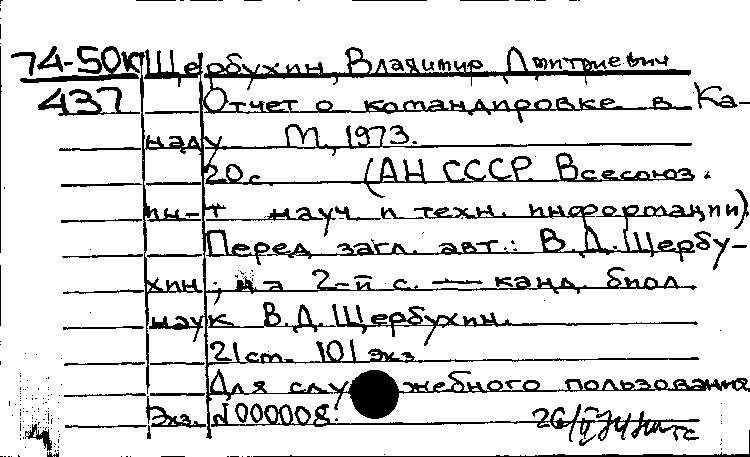 74-50к Щербухин, Владимир Дмитриевич
437 Отчет о командировке в Ка-
наду М., 1973.
20 с. (АН СССР. Всесоюз.
ин-т науч. и техн. информации).
Перед загл. авт.: В.Д. Щербу-
хин; на 2-й с. — канд. биол.
наук В.Д. Щербухин.
21 см. 101 экз.
Для служебного пользования
Экз. № 000008.